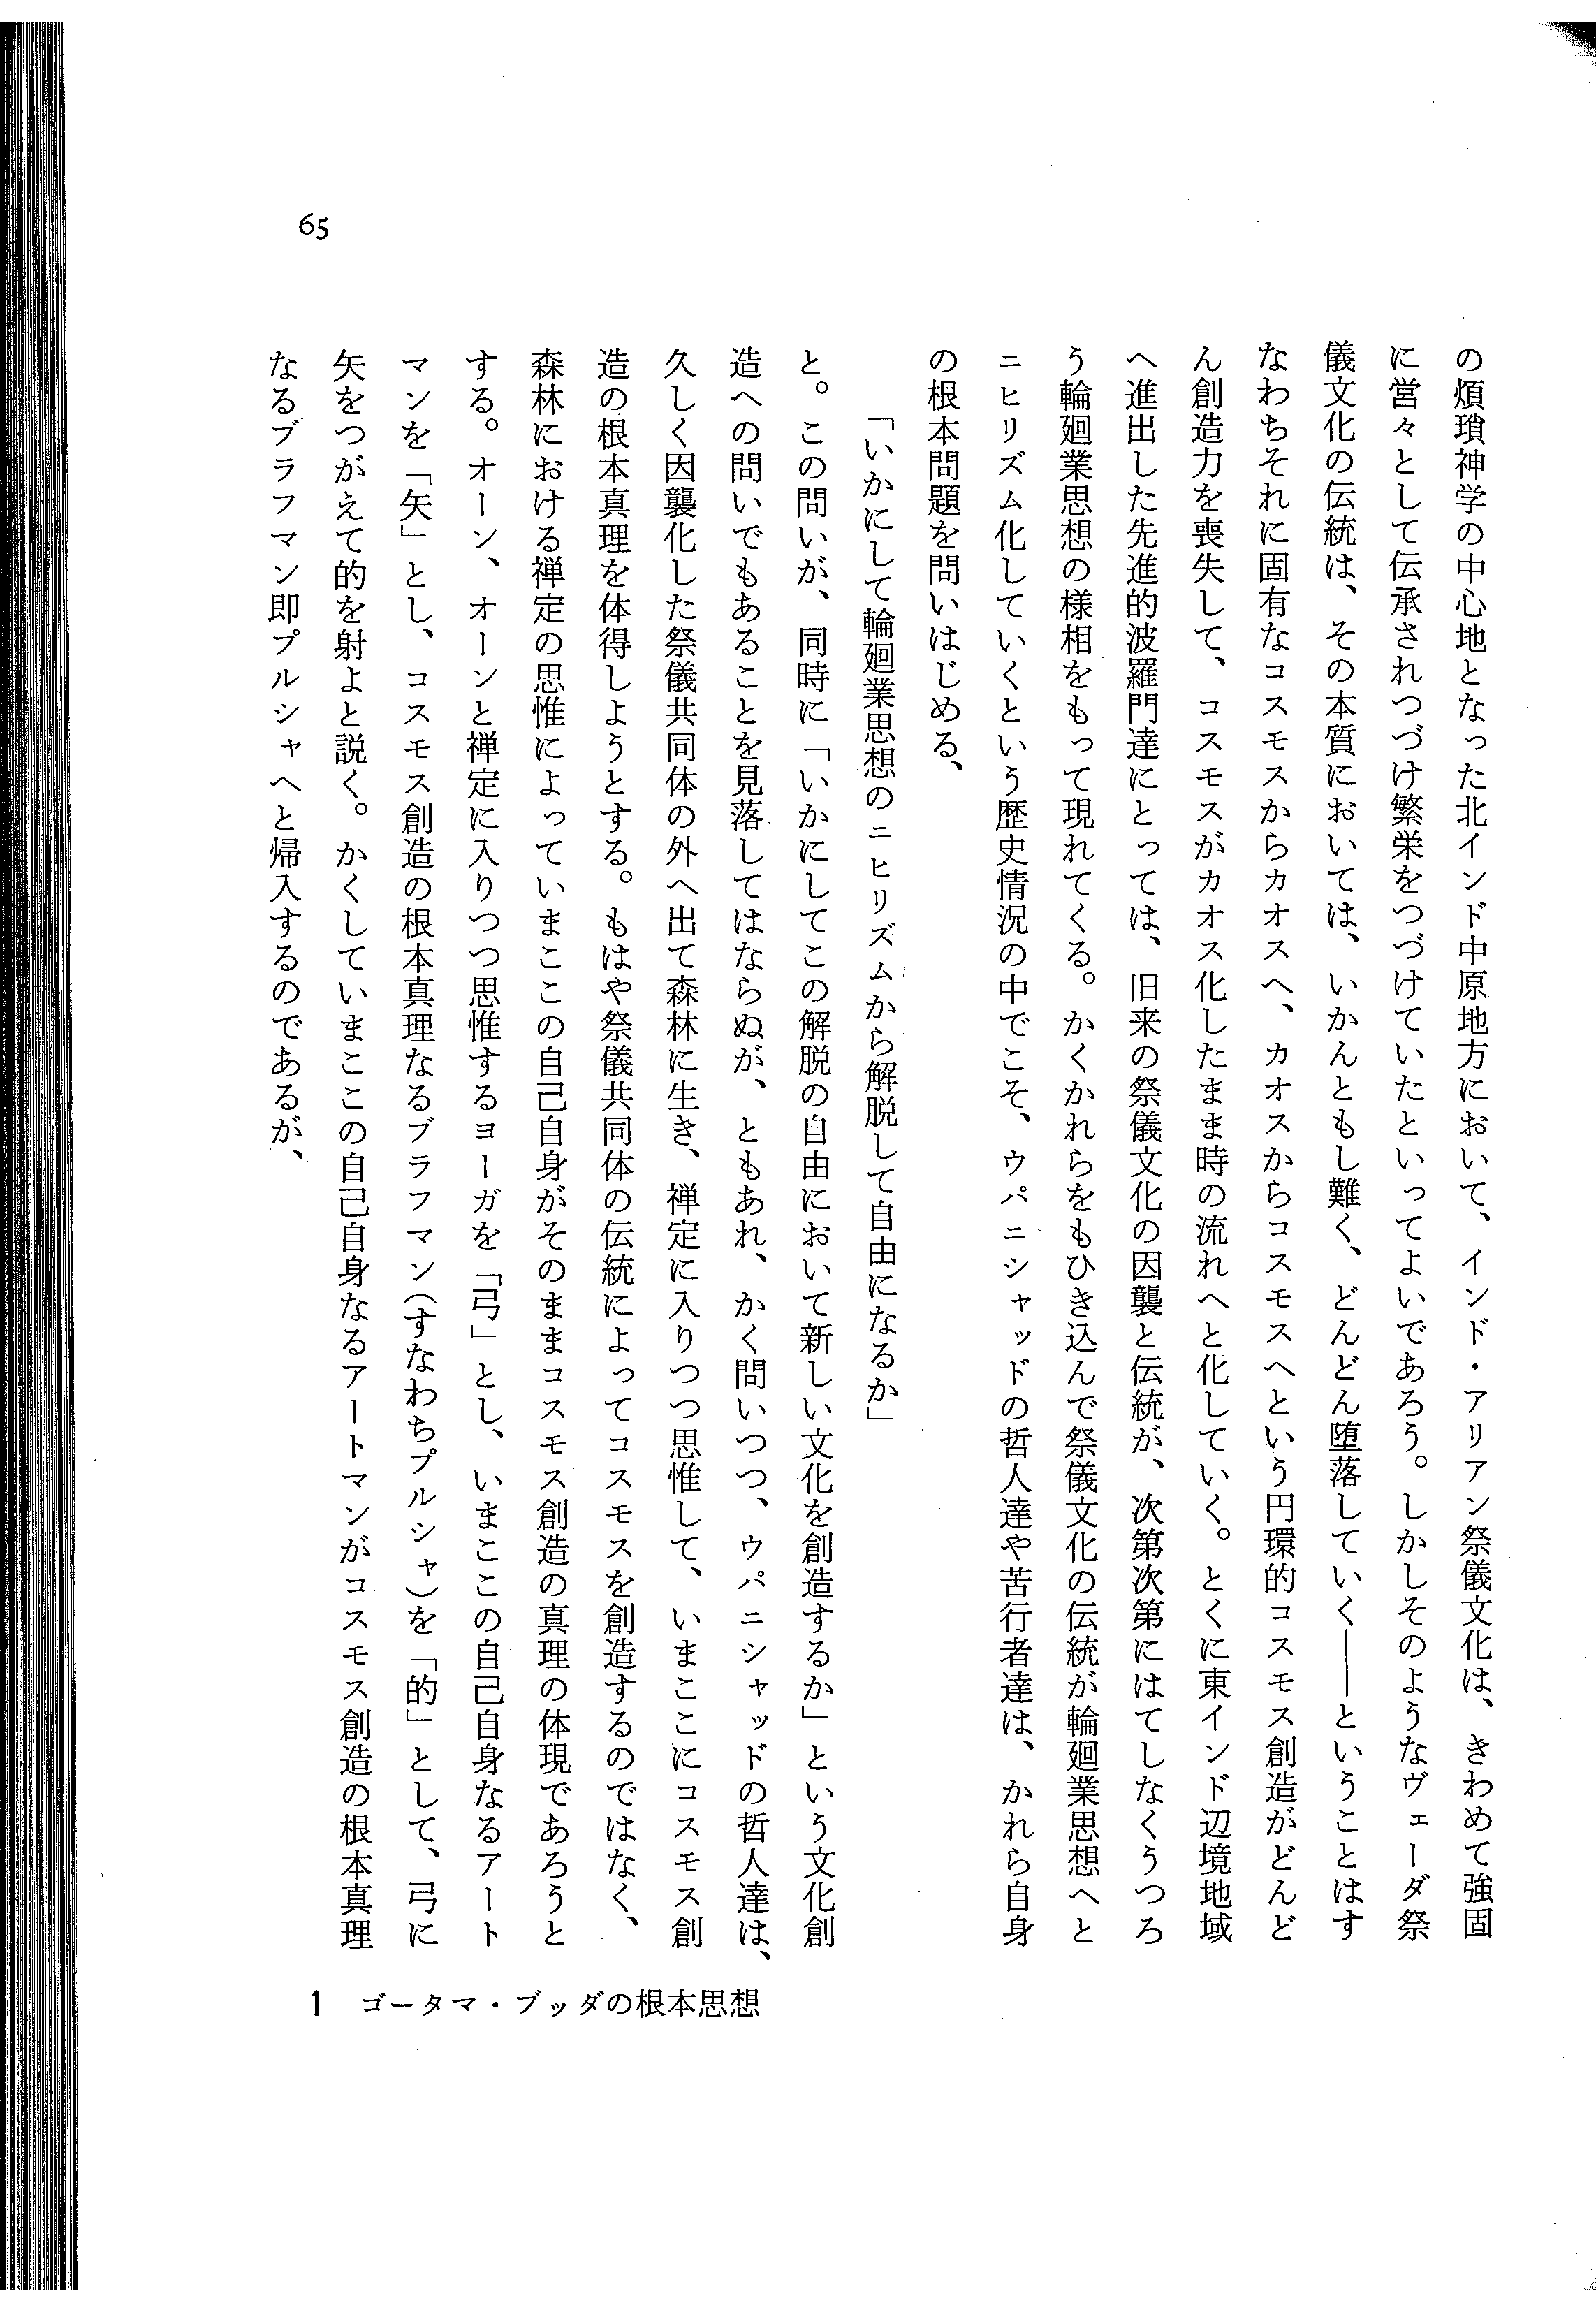 の煩瑣神学の中心地となった北インド中原地方において、インド・アリアン祭儀文化は、きわめて強固
に営々として伝承されつづけ繁栄をつづけていたといってよいであろう。しかしそのようなヴェーダ祭
儀文化の伝統は、その本質においては、いかんともし難く、どんどん堕落していく――ということはす
なわちそれに固有なコスモスからカオスへ、カオスからコスモスへという円環的コスモス創造がどんど
ん創造力を喪失して、コスモスがカオス化したまま時の流れへと化していく。とくに東インド辺境地域
へ進出した先進的波羅門達にとっては、旧来の祭儀文化の因襲と伝統が、次第次第にはてしなくうつろ
う輪廻業思想の様相をもって現れてくる。かくかれらをもひき込んで祭儀文化の伝統が輪廻業思想へと
ニヒリズム化していくという歴史情況の中でこそ、ウパニシャッドの哲人達や苦行者達は、かれら自身
の根本問題を問いはじめる、
「いかにして輪廻業思想のニヒリズムから解脱して自由になるか」
と。この問いが、同時に「いかにしてこの解脱の自由において新しい文化を創造するか」という文化創
造への問いでもあることを見落してはならぬが、ともあれ、かく問いつつ、ウパニシャッドの哲人達は、
久しく因襲化した祭儀共同体の外へ出て森林に生き、禅定に入りつつ思惟して、いまここにコスモス創
造の根本真理を体得しようとする。もはや祭儀共同体の伝統によってコスモスを創造するのではなく、
森林における禅定の思惟によっていまここの自己自身がそのままコスモス創造の真理の体現であろうと
する。オーン、オーンと禅定に入りつつ思惟するヨーガを「弓」とし、いまここの自己自身なるアート
マンを「矢」とし、コスモス創造の根本真理なるブラフマン(すなわちプルシャ)を「的」として、弓に
矢をつがえて的を射よと説く。かくしていまここの自己自身なるアートマンがコスモス創造の根本真理
なるブラフマン即プルシャへと帰入するのであるが、
65
1 ゴータマ・ブッダの根本思想